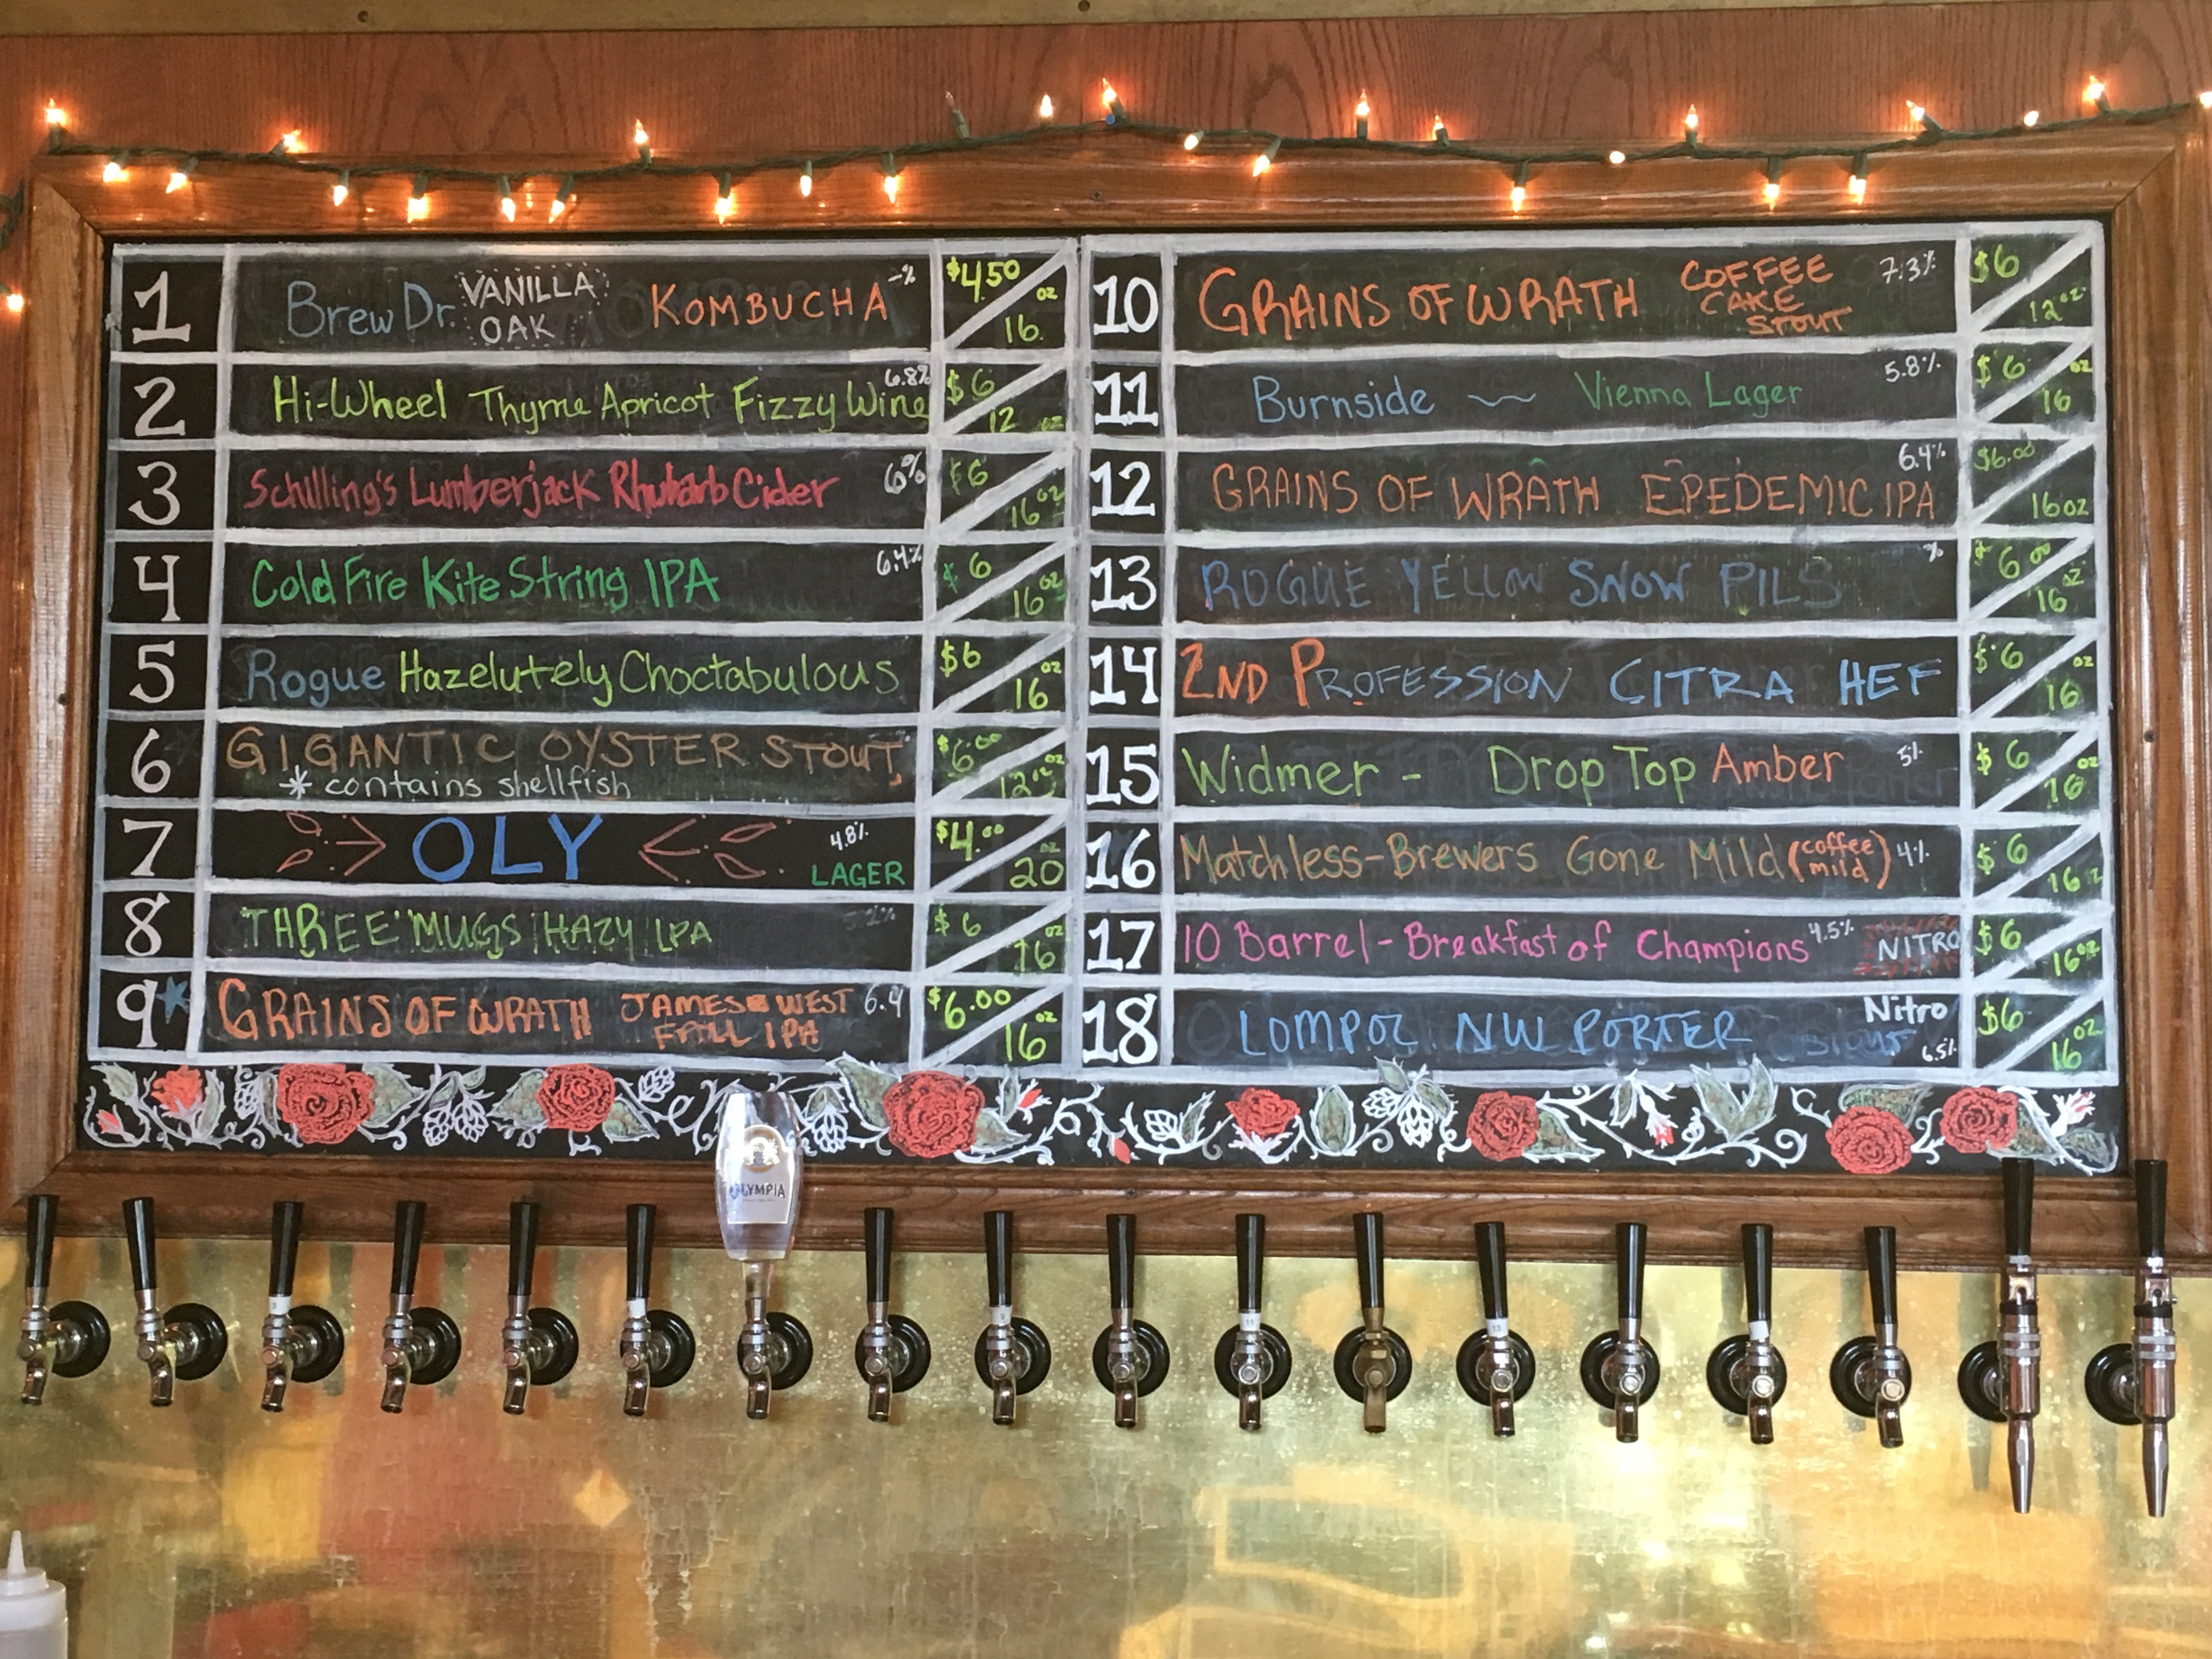 1 Brew Dr. VANILLA OAK KOMBUCHA -% $4.50 16 oz
2 Hi-Wheel Thyme Apricot Fizzy Wine 6.8% $6 12 oz
3 Schilling's Lumberjack Rhubarb Cider 6% $6 16 oz
4 Cold Fire Kite String IPA 6.4% $6 16 oz
5 Rogue Hazelutely Choctabulous $6 16 oz
6 GIGANTIC OYSTER STOUT $6.00 12 oz
* contains shellfish
7 OLY 4.8% LAGER $4.00 20 oz
8 THREE MUGS HAZY IPA 5.2% $6 16 oz
9* GRAINS OF WRATH JAMES WEST FALL IPA 6.4 $6.00 16 oz
10 GRAINS OF WRATH COFFEE CAKE STOUT 7.3% $6 12 oz
11 Burnside ~ Vienna Lager 5.8% $6 16 oz
12 GRAINS OF WRATH EPEDEMIC IPA 6.4% $6.00 16 oz
13 ROGUE YELLOW SNOW PILS % $6.00 16 oz
14 2ND PROFESSION CITRA HEF $6 16 oz
15 Widmer - Drop Top Amber 5% $6 16 oz
16 Matchless-Brewers Gone Mild (coffee mild) 4% $6 16 oz
17 10 Barrel-Breakfast of Champions 4.5% NITRO $6 16 oz
18 LOMPOC NW PORTER Nitro 6.5% $6 16 oz
OLYMPIA
9
11
13